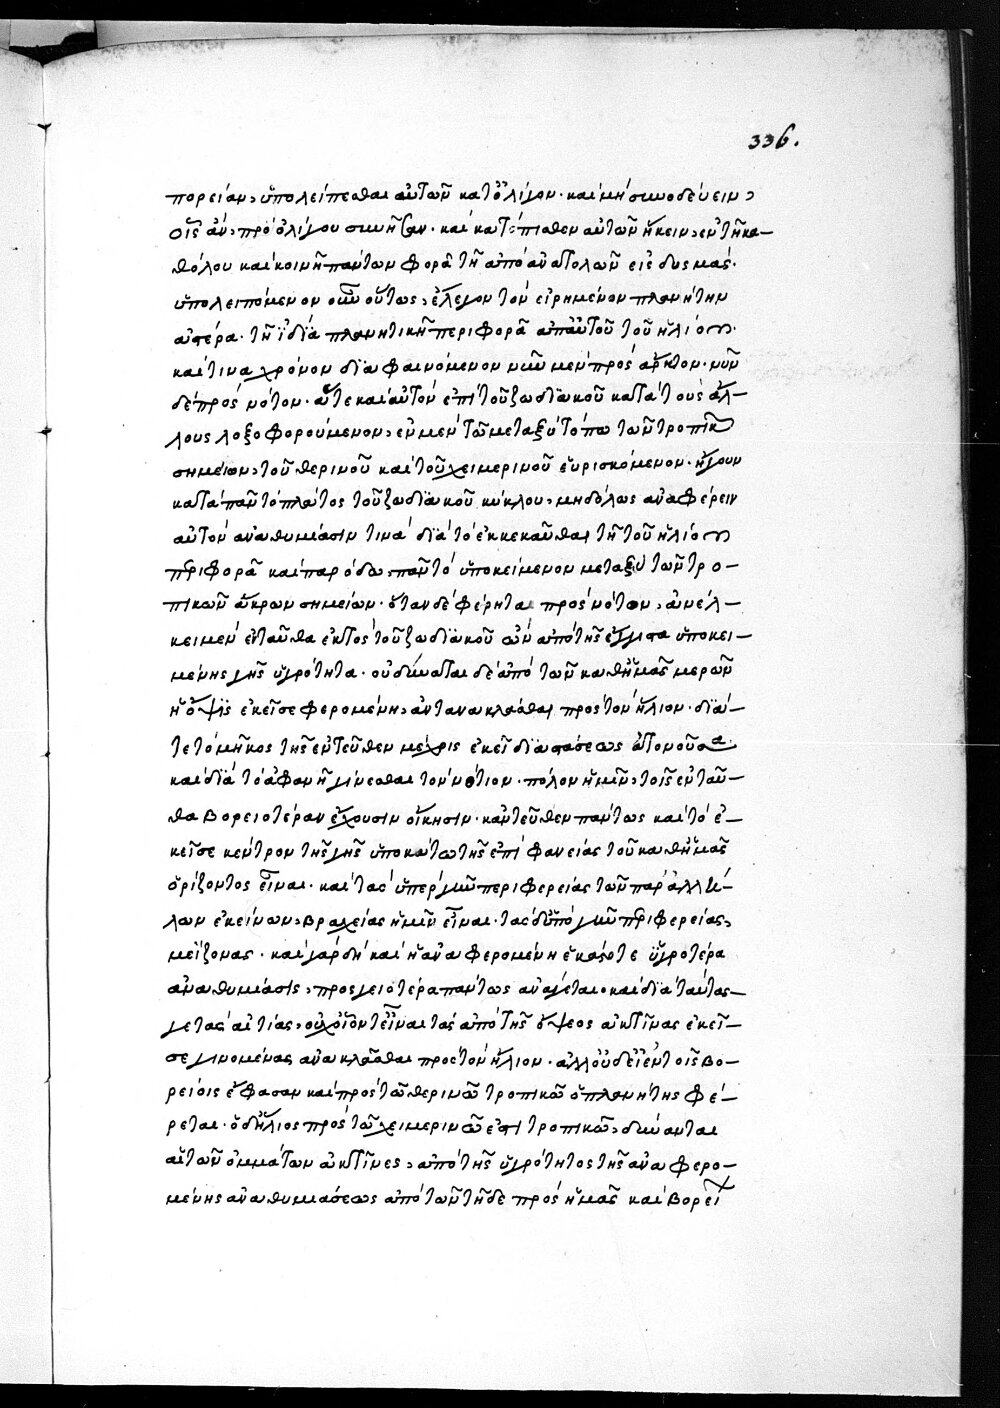 336.
πορείαν, ὑπολείπεσθαι αὐτῶν κατ᾽ ὀλίγον· καὶ μὴ συνοδεύειν,
οἷς ἂν, πρὸ ὀλίγου συνῆσαν· καὶ κατόπισθεν αὐτῶν ἥκειν, ἐν τῇ κα-
θόλου καὶ κοινῇ πάντων φορᾷ τῇ ἀπὸ ἀνατολῶν εἰς δυσμάς·
ὑπολειπόμενον οὖν οὕτως, ἔλεγον τὸν εἰρημένον πλανήτην
ἀστέρα· τῇ ἰδίᾳ πλανητικῇ περιφορᾷ ἀπ᾽ αὐτοῦ τοῦ ἡλίου·
καί τινα χρόνον διαφαινόμενον νῦν μὲν πρὸς ἄρκτον· νῦν
δὲ πρὸς νότον· ἅτε καὶ αὐτὸν ἐπὶ τοῦ ζωδιακοῦ κατὰ τοὺς ἄλ-
λους λοξοφορούμενον, ἐν μὲν τῷ μεταξὺ τόπω τῶν τροπικῶν
σημείων, τοῦ θερινοῦ καὶ τοῦ χειμερινοῦ εὑρισκόμενον· ἤγουν
κατὰ πᾶν τὸ πλάτος τοῦ ζωδιακοῦ κύκλου, μηδόλως ἀναφέρειν
αὐτὸν ἀναθυμίασίν τινα διὰ τὸ ἐκκεκαῦσθαι τῇ τοῦ ἡλίου
περιφορᾷ καὶ παρόδω, πᾶν τὸ ὑποκείμενον μεταξὺ τῶν τρο-
πικῶν ἄκρων σημείων· ὅταν δὲ φέρηται πρὸς νότον, ἀνέλ-
κει μὲν ἐνταῦθα ἐκτὸς τοῦ ζωδιακοῦ ὢν ἀπὸ τῆς ἔγγιστα ὑποκει-
μένης γῆς ὑγρότητα· οὐ δύναται δὲ ἀπὸ τῶν καθ᾽ ἡμᾶς μερῶν
ἡ ὄψις ἐκεῖσε φερομένη, ἀντανακλᾶσθαι πρὸς τὸν ἥλιον· διά
τε τὸ μῆκος τῆς ἐντεῦθεν μέχρις ἐκεῖ διαστάσεως ἀτονοῦσα·
καὶ διὰ τὸ ἀφανῆ γίνεσθαι τὸν νότιον· πόλον ἡμῖν, τοῖς ἐνταῦ-
θα βορειοτέραν ἔχουσιν οἴκησιν· κἀντεῦθεν πάντως καὶ τὸ ἐ-
κεῖσε κέντρον τῆς γῆς ὑποκάτω τῆς ἐπιφανείας τοῦ καθ᾽ ἡμᾶς
ὁρίζοντος εἶναι· καὶ τὰς ὑπὲρ γῆν περιφερείας τῶν παραλλή-
λων ἐκείνων, βραχείας ἡμῖν εἶναι· τὰς δ᾽ ὑπὸ γῆν περιφερείας,
μείζονας· καὶ γὰρ δὴ καὶ ἡ ἀναφερομένη ἑκάστοτε ὑγροτέρα
ἀναθυμίασις, προσγειοτέρα πάντως ἀνάγεται· καὶ διὰ ταύτας
γε τὰς αἰτίας, οὐχ οἷόν τε εἶναι τὰς ἀπὸ τῆς ὄψεος ἀκτῖνας ἐκεῖ-
σε γινομένας ἀνακλᾶσθαι πρὸς τὸν ἥλιον· ἀλλ᾽ οὐδ᾽ εἰ ἐν τοῖς βο-
ρείοις ἔφασαν καὶ πρὸς τῷ θερινῷ τροπικῷ ὁ πλανήτης φέ-
ρεται· ὁ δ᾽ ἥλιος πρὸς τῷ χειμερινῷ ἐστι τροπικῷ, δύνανται
αἱ τῶν ὀμμάτων ἀκτῖνες, ἀπὸ τῆς ὑγρότητος τῆς ἀναφερο-
μένης ἀναθυμιάσεως ἀπὸ τῶν τῇδε πρὸς ἡμᾶς καὶ βορεί